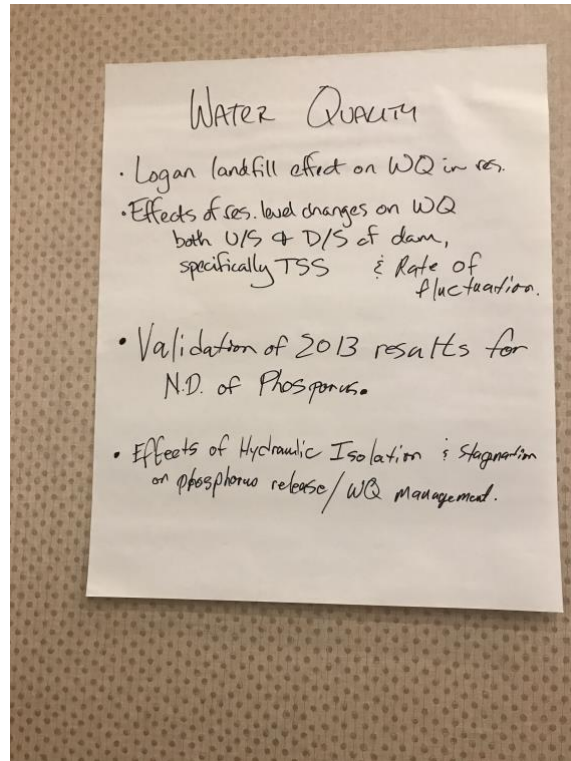 WATER QUALITY
· Logan landfill effect on WQ in res.
· Effects of res. level changes on WQ
both U/S & D/S of dam,
specifically TSS & Rate of
fluctuation.
· Validation of 2013 results for
N.D. of Phosporus.
· Effects of Hydraulic Isolation & Stagnation
on phosphorus release/WQ management.